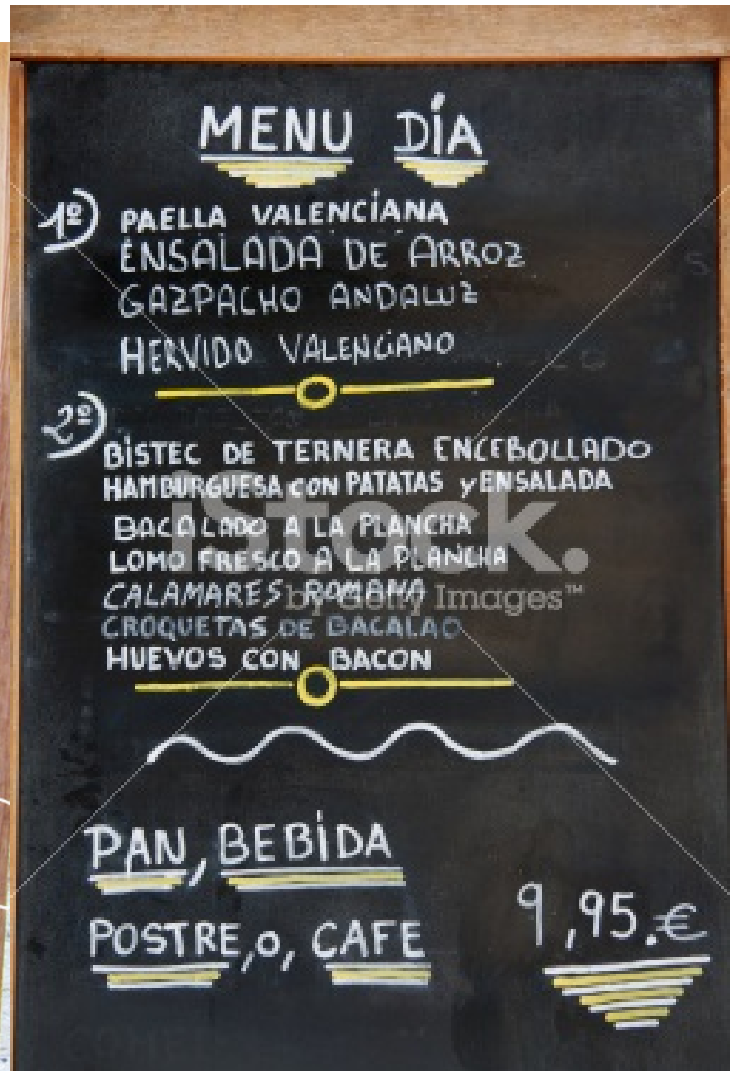 MENU DÍA
1º) PAELLA VALENCIANA
ENSALADA DE ARROZ
GAZPACHO ANDALUZ
HERVIDO VALENCIANO
2º)
BISTEC DE TERNERA ENCEBOLLADO
HAMBURGUESA CON PATATAS y ENSALADA
BACALADO A LA PLANCHA
LOMO FRESCO A LA PLANCHA
CALAMARES ROMANA
CROQUETAS DE BACALAO
HUEVOS CON BACON
PAN, BEBIDA
POSTRE, o, CAFE
9,95.€
iStock.
by Getty Images™